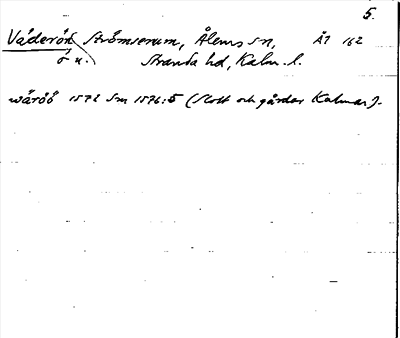 5.
Väderön Strömserum, Ålems sn, Ål 162
ö n. Stranda hd, Kalm. l.
wäröö 1572 Sm 1576:5 (Slott och gårdar Kalmar).